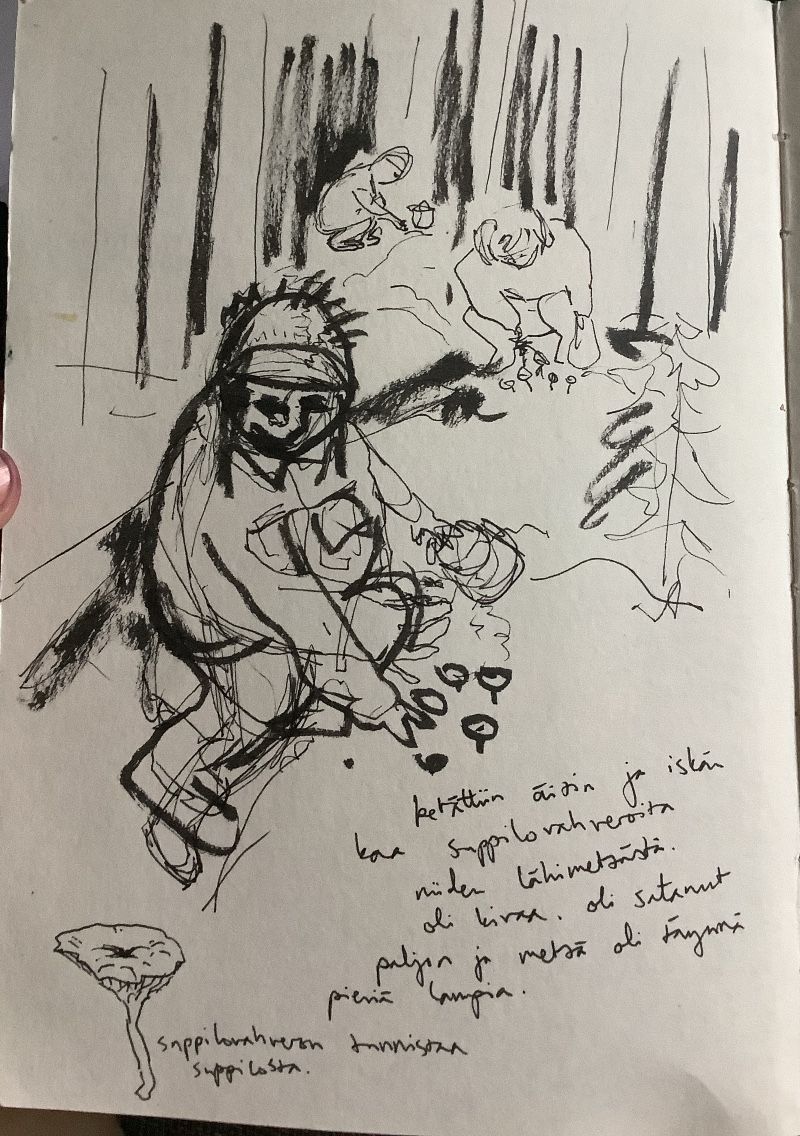 kerättiin äisin ja iskän
kaa suppilovahveroita
niiden lähimetsästä.
oli kivaa. oli satanut
paljon ja metsä oli täynnä
pieniä lampia.
suppilovahveron tunnistaa
suppilosta.